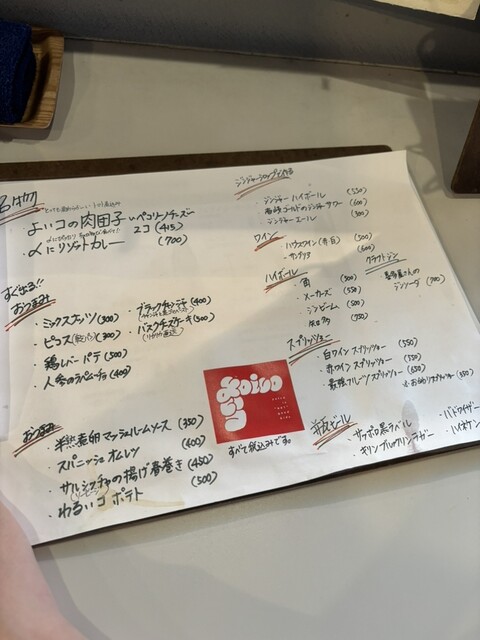 名物
よいコの肉団子 いペコリーノチーズ~
2コ (415)
〆にリゾットカレー (700)
すぐ出る!!
おつまみ
・ミックスナッツ (300)
・ピコス (300)
・鶏レバーパテ (500)
・人参のラペムーチョ (400)
・ブラックチャンチ (400)
・バスクチーズケーキ (500)
おつまみ
・半熟煮卵 マッシュルームソース (350)
・スパニッシュオムレツ (400)
・サルシッチャの揚げ春巻き (450)
・わるいコ ポテト (500)
yoico
すべて税込みです。
・ジンジャーハイボール (550)
・ジンジャーエール (500)
ワイン
・ハウスワイン (赤・白) (500)
・サングリア (600)
ハイボール
・角 (500)
・メーカーズ (550)
・ジンビーム (500)
クラフトジン
ジンソーダ
スプリッツァー
・白ワインスプリッツァー (550)
・赤ワインスプリッツァー (550)
瓶ビール
・サッポロ黒ラベル
・キリンブルワリーラガー
・バドワイザー
・ハイネケン